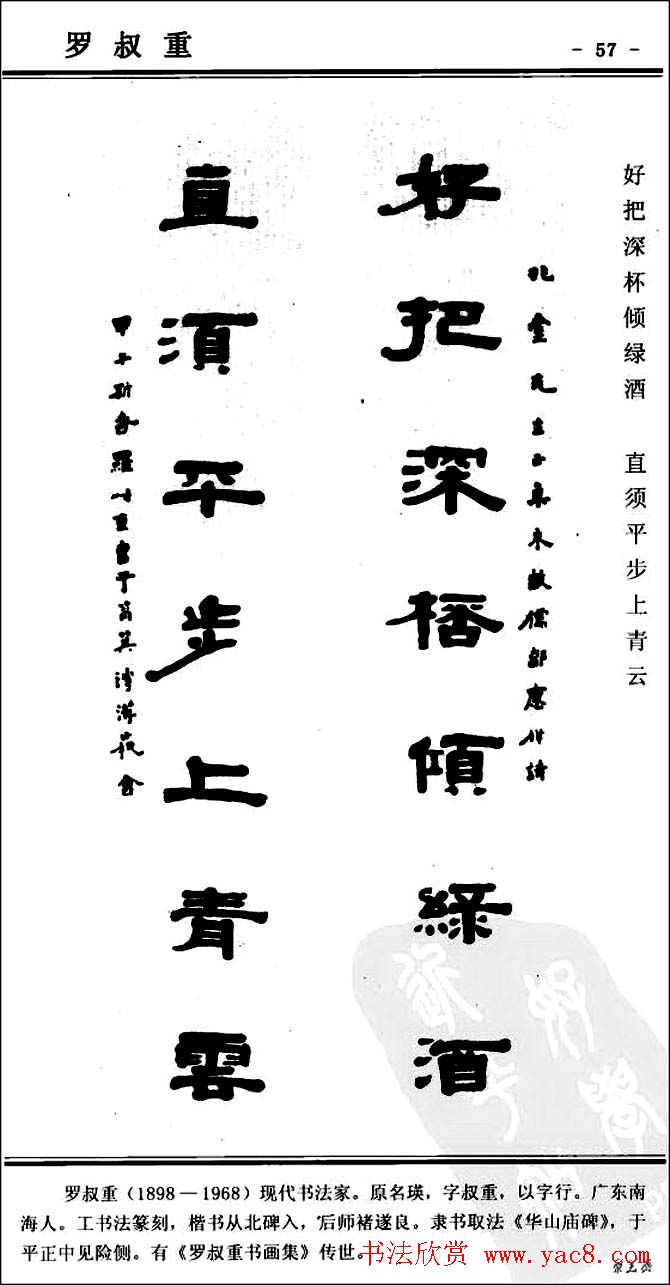 罗叔重
- 57 -
好把深杯倾绿酒 直须平步上青云
好把深桮傾綠酒
直須平步上青雲
羅叔重書于筲箕灣
罗叔重(1898—1968)现代书法家。原名瑛,字叔重,以字行。广东南
海人。工书法篆刻,楷书从北碑入,后师褚遂良。隶书取法《华山庙碑》,于
平正中见险侧。有《罗叔重书画集》传世。
书法欣赏 www.yac8.com